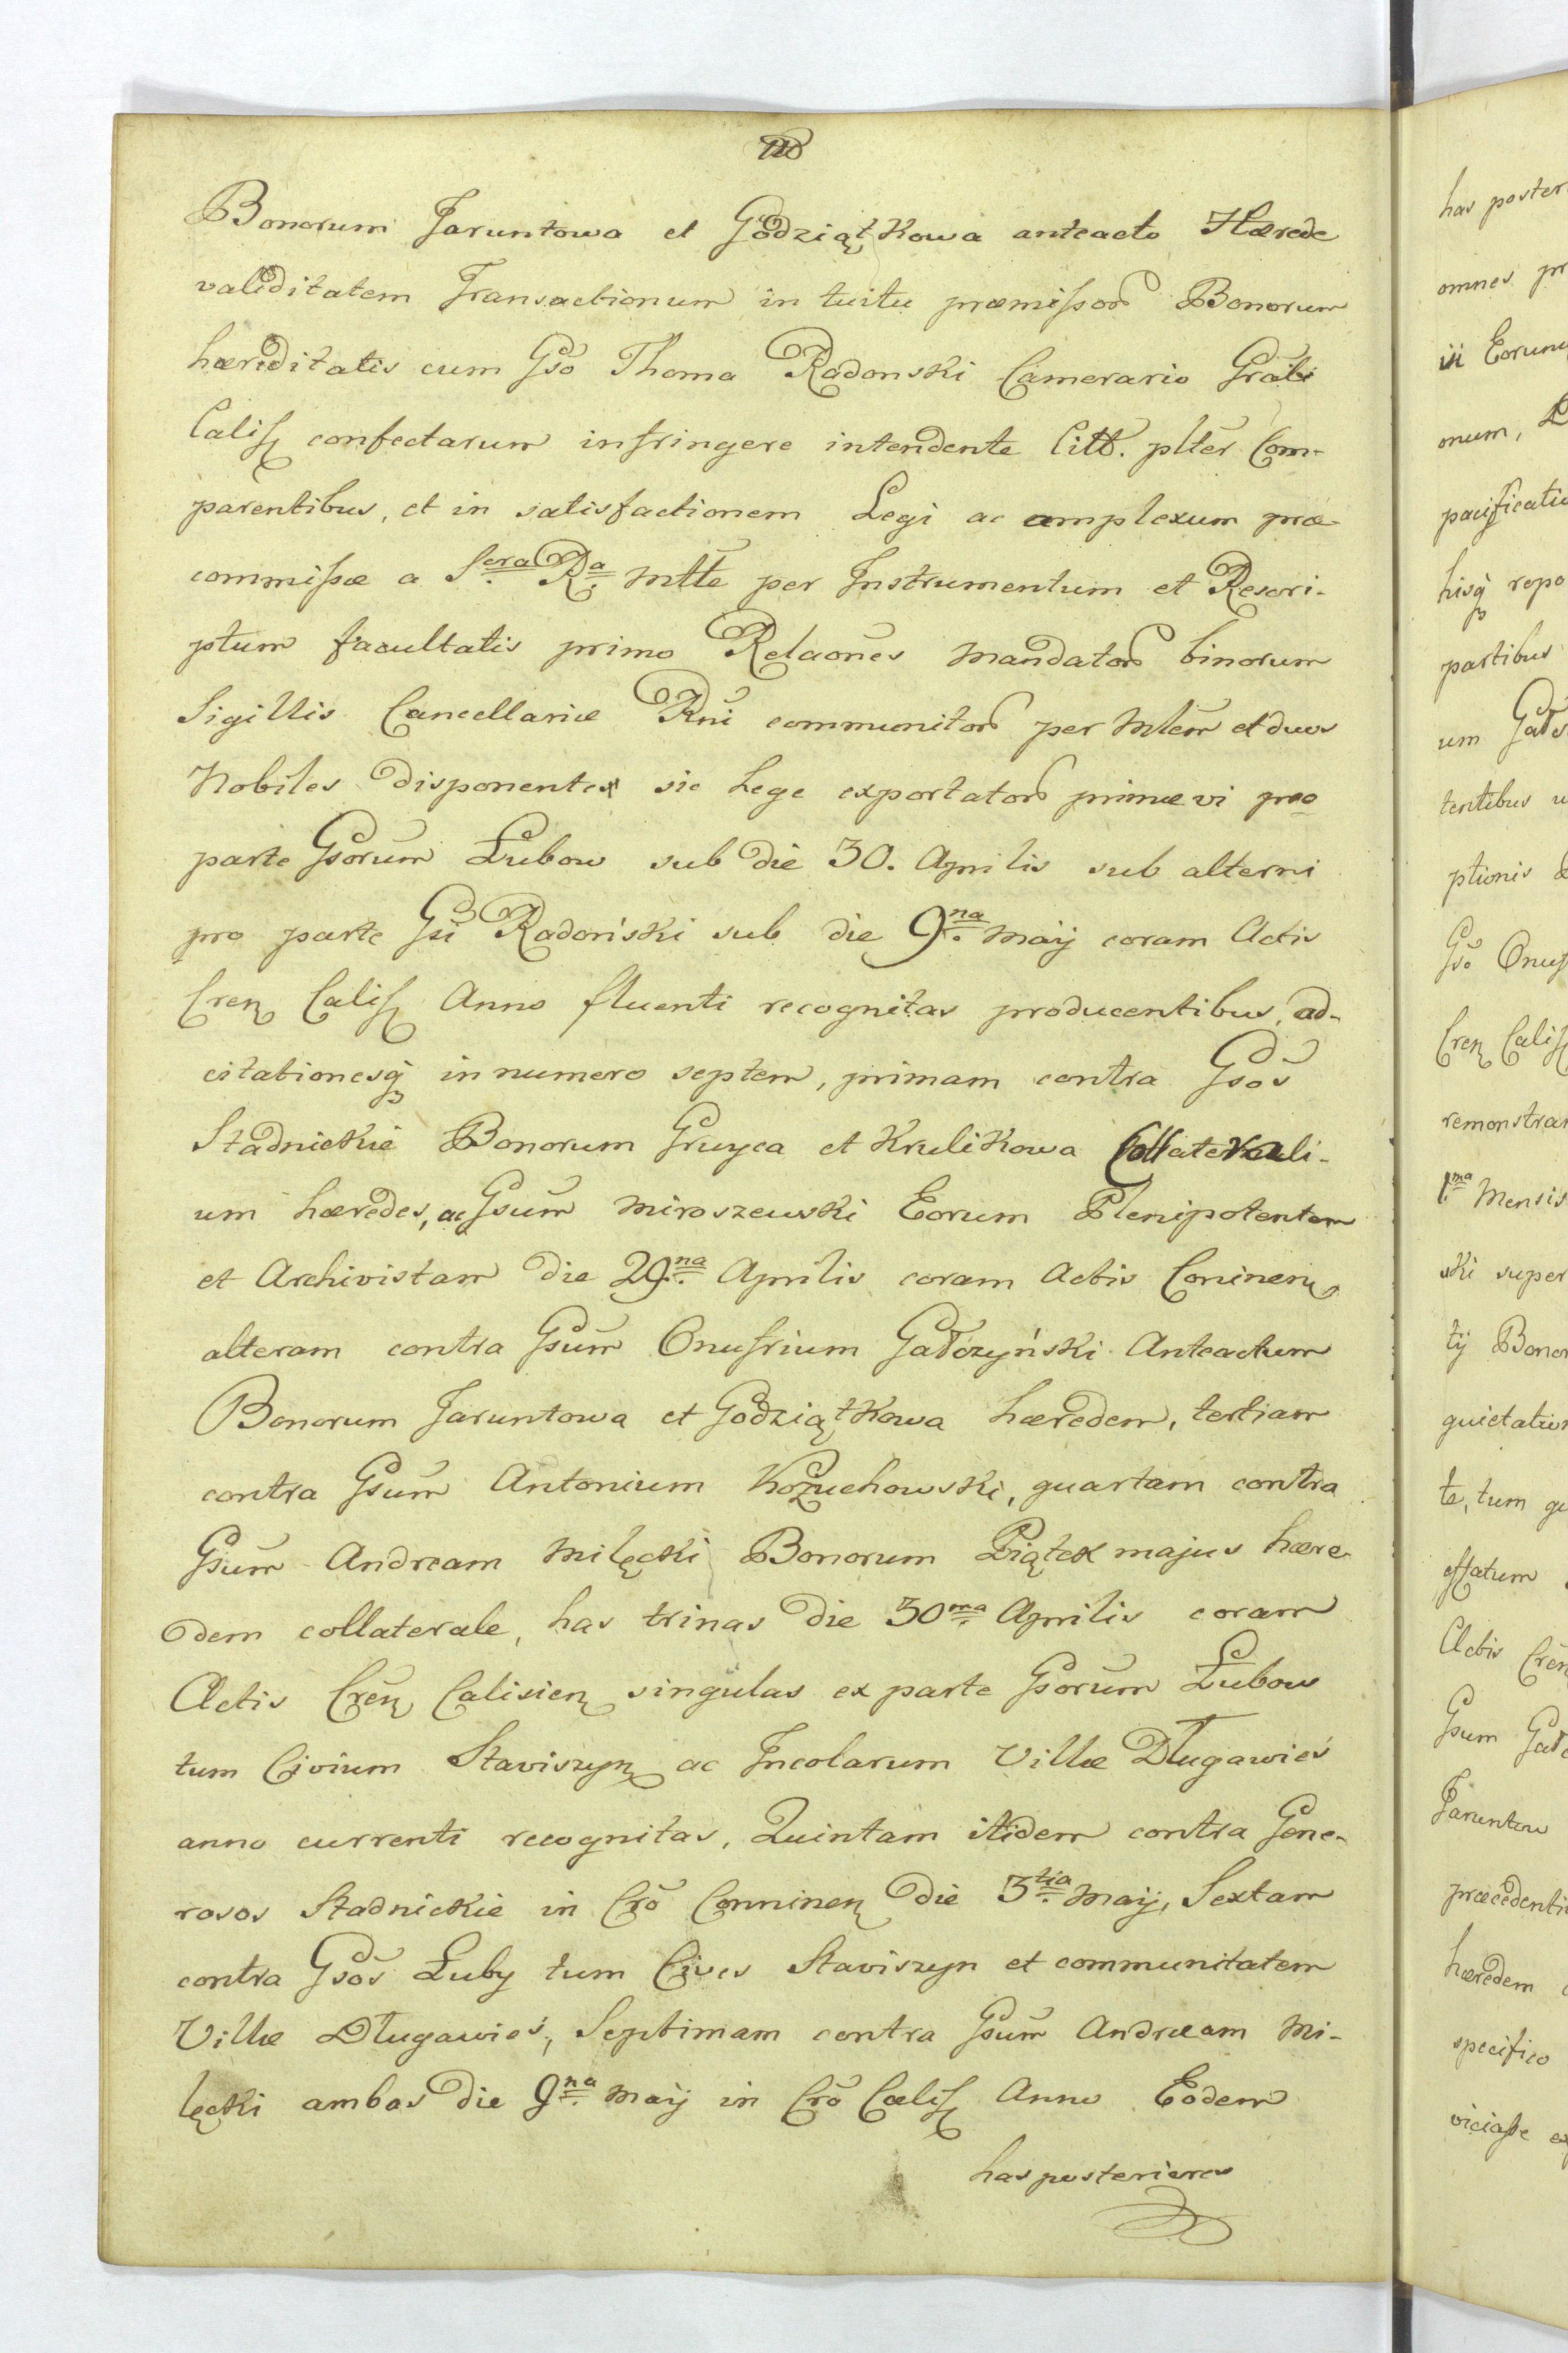 Bonorum Jaruntowa et Godziątkowa anteacto Hærede
validitatem Transactionum in tuitu præmissor Bonorum
hæreditatis cum Gso Thoma Radonski Camerario Grāli
Calis confectarum infringere intendente Citt. pltēr Com-
parentibus, et in satisfactionem Legi ac amplexum præ-
commissæ a Scra Ra Mtte per Instrumentum et Rescri-
ptum facultatis primo Relaōnes Mandator binorum
Sigillis Cancellariæ Rni communitor per Mlem et duos
Nobiles disponente sic Lege exportator primævi pro
parte Gsorum Lubow sub die 30. Aprilis sub alterni
pro parte Gsi Radoński sub die 9na Maij coram Actis
Cren Calis Anno fluenti recognitas producentibus, ad-
citationesq in numero septem, primam contra Gsōs
Stadnickie Bonorum Gruyca et Krulikowa Collaterali-
um hæredes, ac Gsum Miroszewski Eorum Plenipotentem
et Archivistam die 29na Aprilis coram Actis Coninen
alteram contra Gsum Onufrium Gałczyński Anteactum
Bonorum Jaruntowa et Godziątkowa hæredem, tertiam
contra Gsum Antonium Kożuchowski, quartam contra
Gsum Andream Milęcki Bonorum Piątek majus hære-
dem collaterale, has trinas die 30ma Aprilis coram
Actis Cren Calisien singulas ex parte Gsorum Lubow
tum Civium Staviszyn ac Incolarum Villæ Długawieś
anno currenti recognitas, Quintam itidem contra Gene-
rosos Stadnickie in Crō Conninen die 3tia Maij, Sextam
contra Gsōs Luby tum Cives Staviszyn et communitatem
Villæ Długawieś, Septimam contra Gsum Andream Mi-
lęcki ambas die 9na Maij in Crō Calis Anno Eodem
has posteriores
has poster
omnes pr
ii Eorum
onum,
pacificatio
hisq repo
partibus
um
tentibus
ptionis
Gsō Onuf
Cren Calis
remonstra
1ma Mensis
ski super
tij Bonor
quietation
te, tum qu
effatum
Actis Cren
Gsum Gał
Jaruntow
præcedenti
hæredem
specifico
viciasse